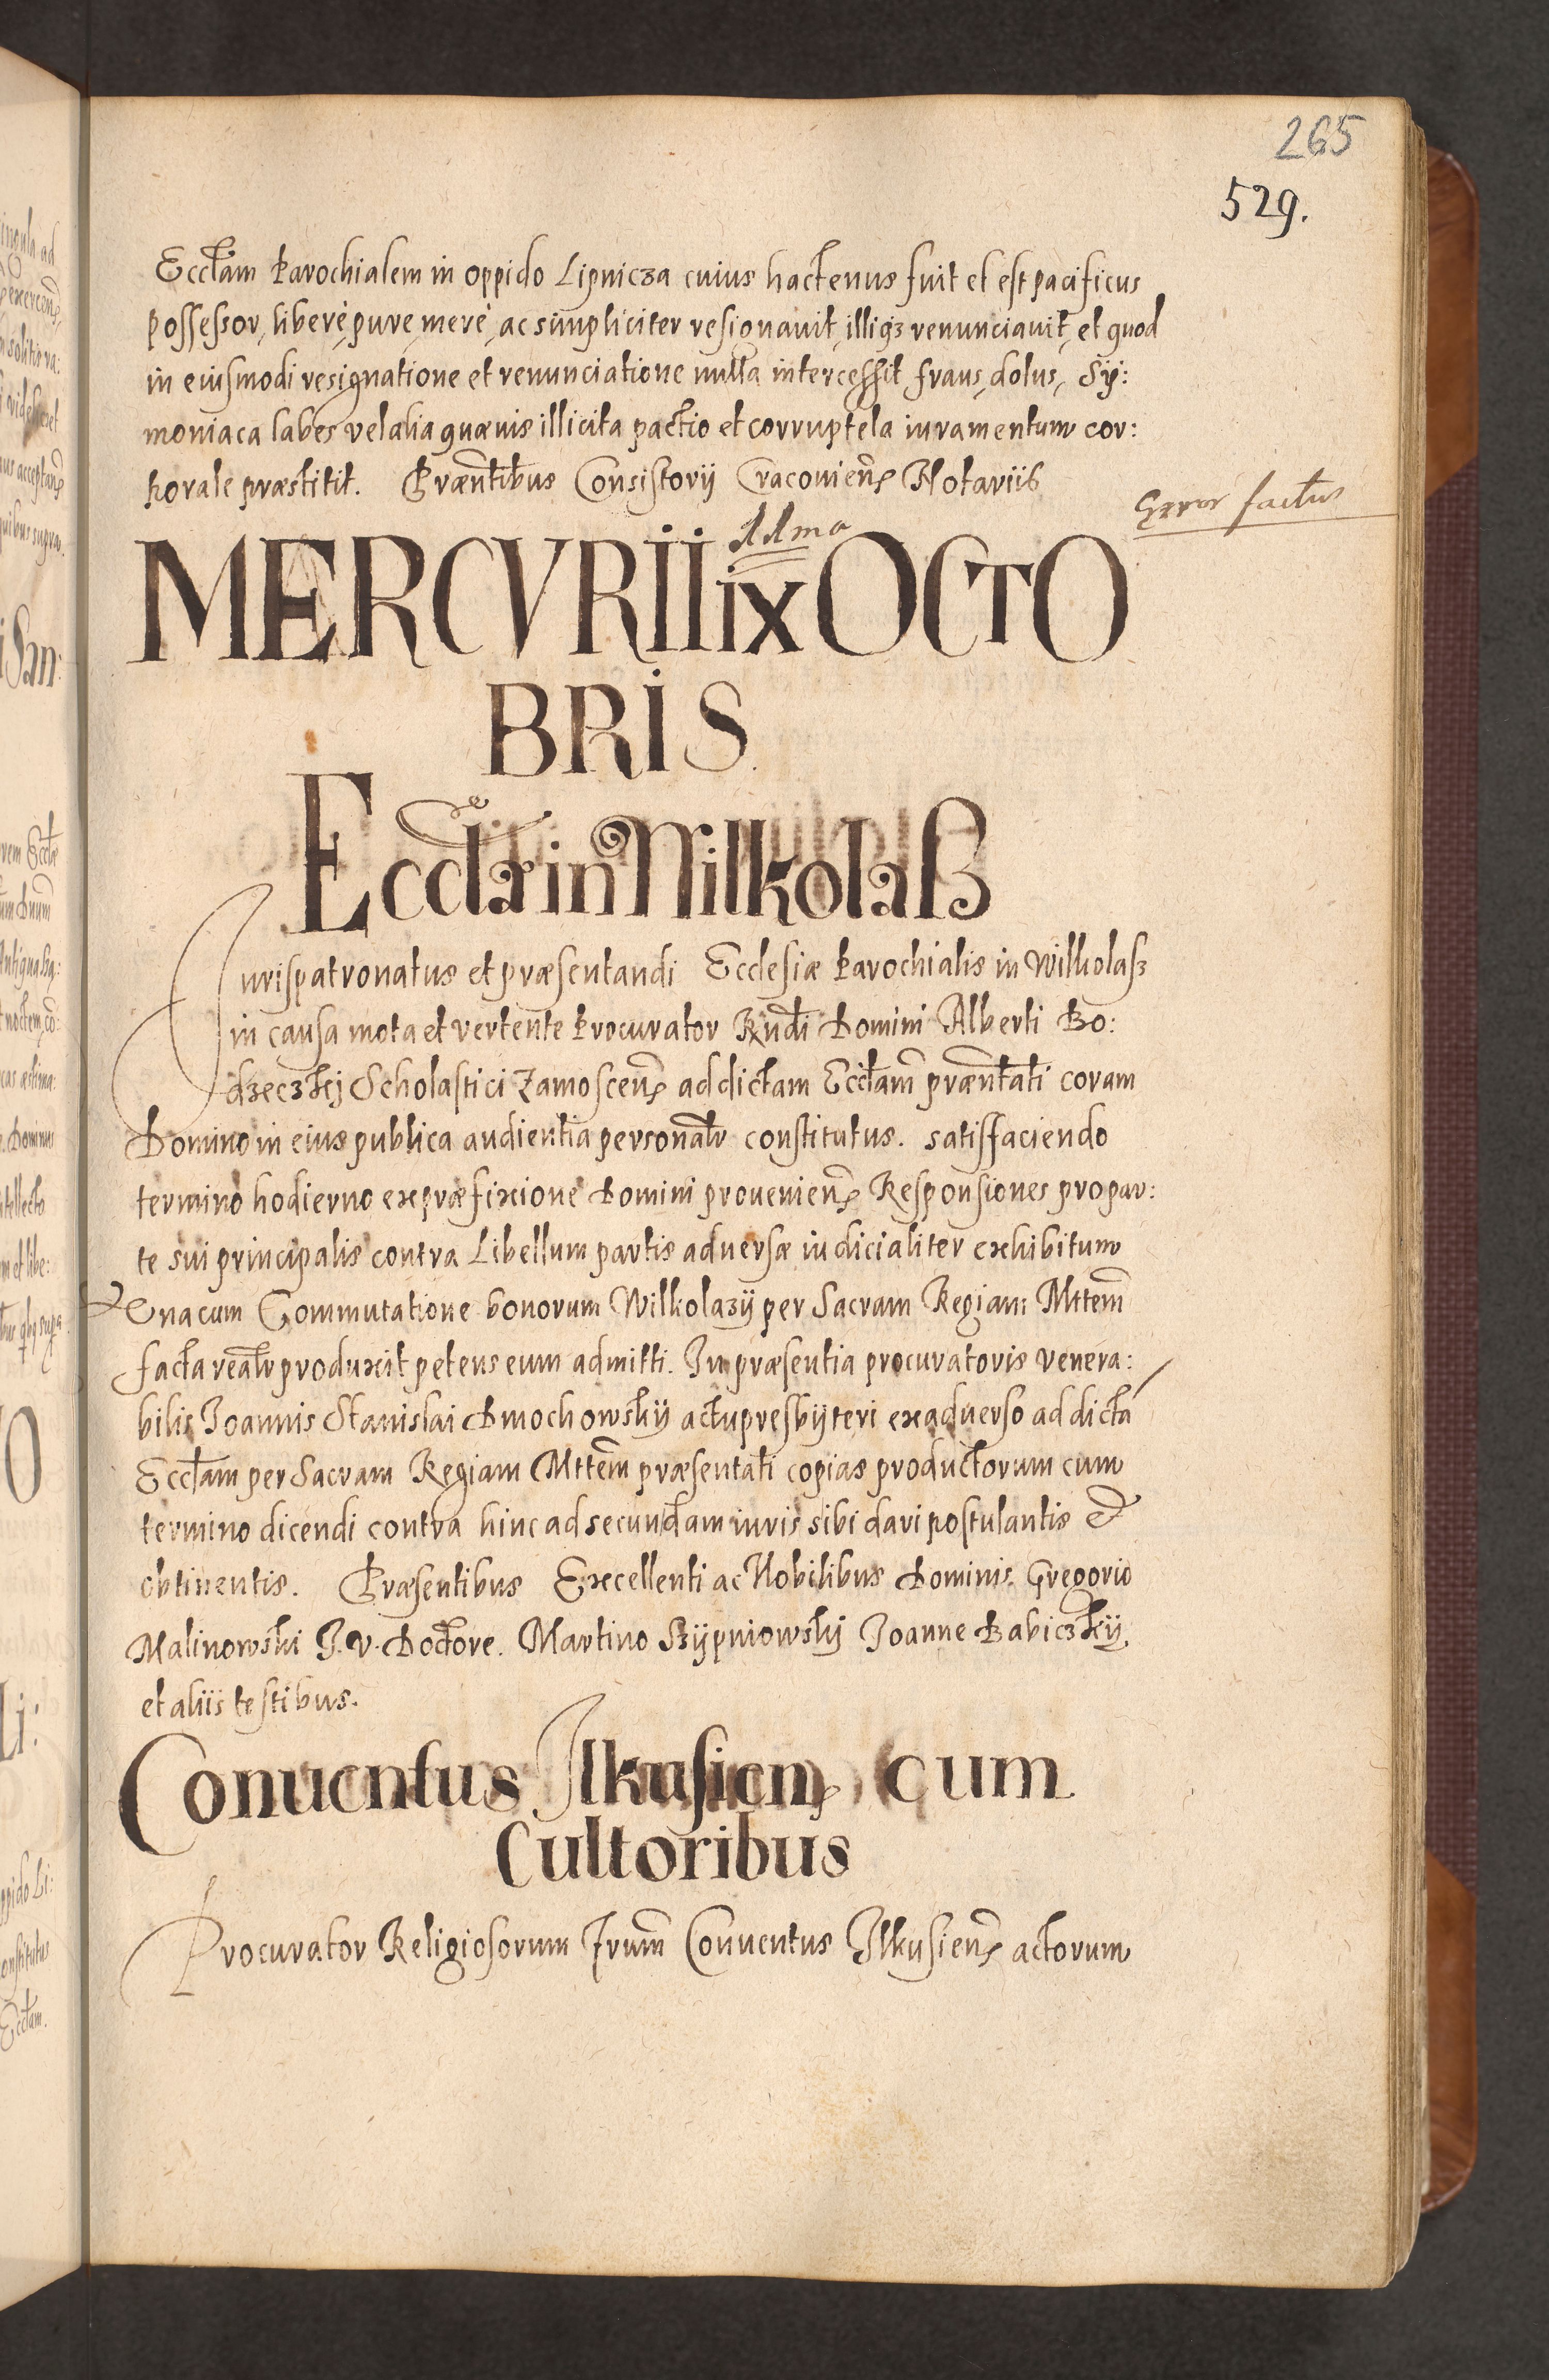 265
529.
Ecctam Parochialem in oppido Lipnicza cuius hactenus fuit et est pacificus
possessor, liberè, pure, merè, ac simpliciter resignauit, illiq3 renunciauit, et quod
in eiusmodi resignatione et renunciatione nulla intercessit fraus, dolus, Sÿ:
moniaca labes vel alia quæuis illicita pactio et corruptela iuramentum cor:
porale præstitit. Præntibus Consistorij Cracouien Notariis
Error factus
11ma
MERCVRII ix OCTO
BRIS.
Ecctæ in Nilkolasz
Jurispatronatus et præsentandi Ecclesiæ Parochialis in Wilkolasz
in causa mota et vertente Procurator Rndi Domini Alberti Bo:
drzeczkij Scholastici Zamoscen ad dictam Ecctam præntati coram
Domino in eius publica audientia personatr constitutus. satisfaciendo
termino hodierno ex præfixione Domini prouenien Responsiones pro par:
te sui principalis contra Libellum partis aduersæ iudicialiter exhibitum
Vna cum Commutatione bonorum Wilkolazÿ per Sacram Regiam Mttem
facta reatr produxit petens eum admitti. In præsentia procuratoris venera:
bilis Joannis Stanislai Dmochowskÿ actu presbÿteri ex aduerso ad dictā
Ecctam per Sacram Regiam Mttem præsentati copias productorum cum
termino dicendi contra hinc ad secundam iuris sibi dari postulantis &
obtinentis. Præsentibus Excellenti ac Nobilibus Dominis Gregorio
Malinowski J. V. Doctore. Martino Rzÿpniowskÿ Joanne Babiczkÿ
et aliis testibus.
Conuentus Ilkusien cum
Cultoribus
Procurator Religiosorum frum Conuentus Ilkusien actorum